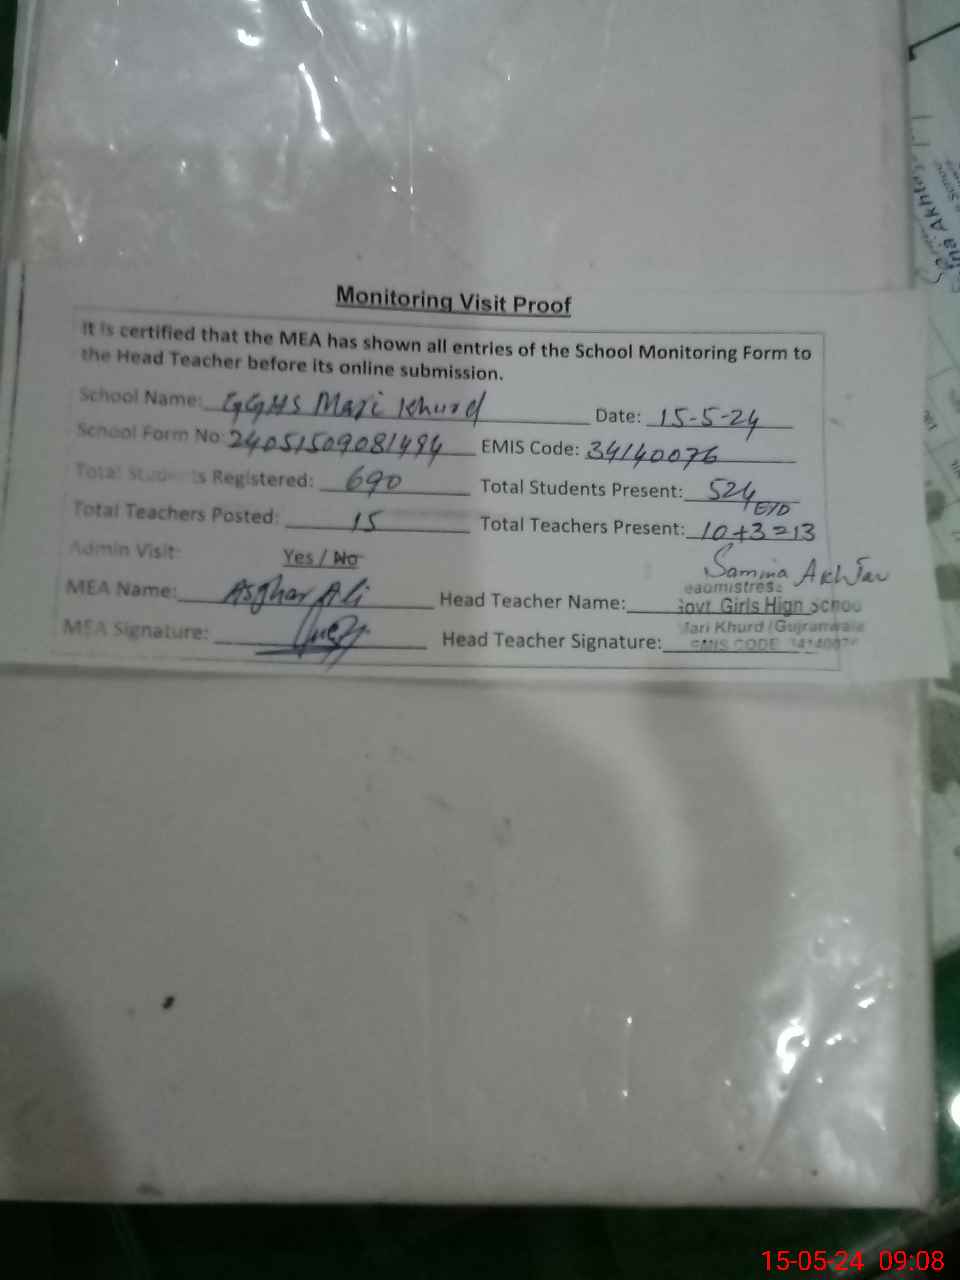 Monitoring Visit Proof
It is certified that the MEA has shown all entries of the School Monitoring Form to
the Head Teacher before its online submission.
School Name: GGHS Mari Khurd Date: 15-5-24
School Form No: 24051509081494 EMIS Code: 34140076
Total Students Registered: 690 Total Students Present: 524
Total Teachers Posted: 15 Total Teachers Present: 10+3=13
Admin Visit: Yes / No
Samina Akhtar
MEA Name: Asghar Ali Head Teacher Name:
Govt. Girls High School
Mari Khurd (Gujranwala
MEA Signature: Head Teacher Signature:
EMIS CODE
15-05-24 09:08